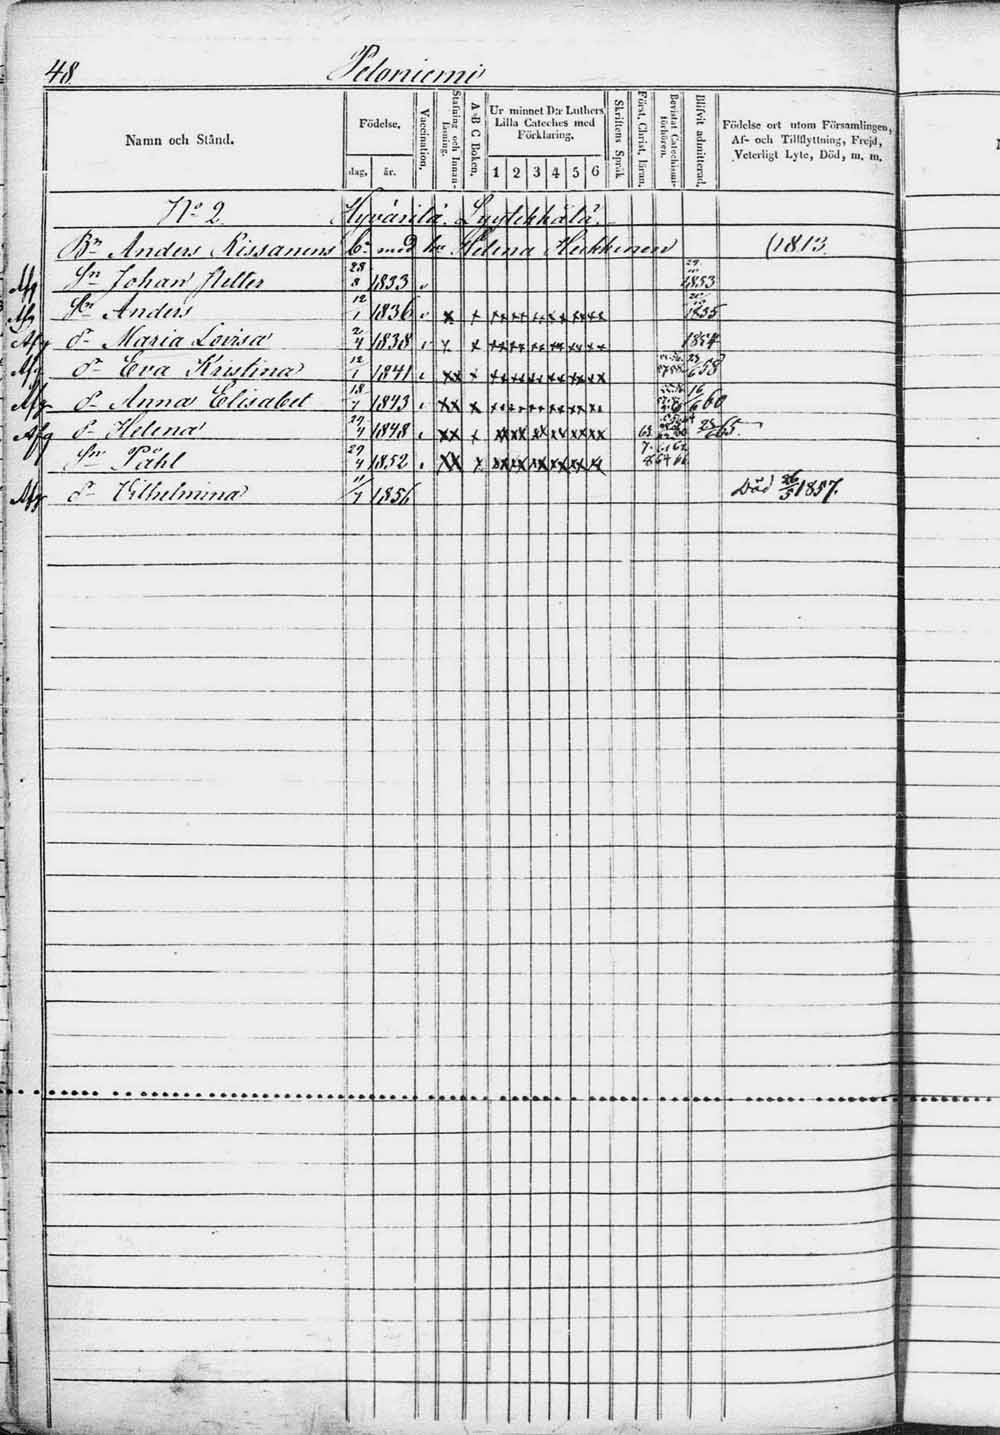 48.
Peloniemi
Namn och Stånd.
Födelse,
dag, år.
Vaccination,
Stafning och Innan-läsning.
A-B C Boken.
Ur minnet D:r Luthers Lilla Cateches med Förklaring.
1 2 3 4 5 6
Skriftens Språk
Först. Christ. läran.
Bevistat Catechismi-förhören.
Blifvit admitterad.
Födelse ort utom Församlingen,
Af- och Tillflyttning, Frejd,
Veterligt Lyte, Död, m. m.
No 2. Hyvärilä. Lyytikkälä.
Bn Anders Kissanens bn med hu Helena Heikkinen (1813.
Afg Sn Johan Petter 28/8 1833 1853
Afg Sn Anders 12/1 1836 1855
Afg dr Maria Lovisa 2/4 1838 1854
Afg dr Eva Kristina 12/1 1841 58
Afg dr Anna Elisabet 18/7 1843 16/6 60
Afg dr Helena 29/4 1848 63 25/6 65.
Sn Påhl 29/4 1852 64 66
Afg dr Vilhelmina 11/7 1856 Död 26/5 1857.